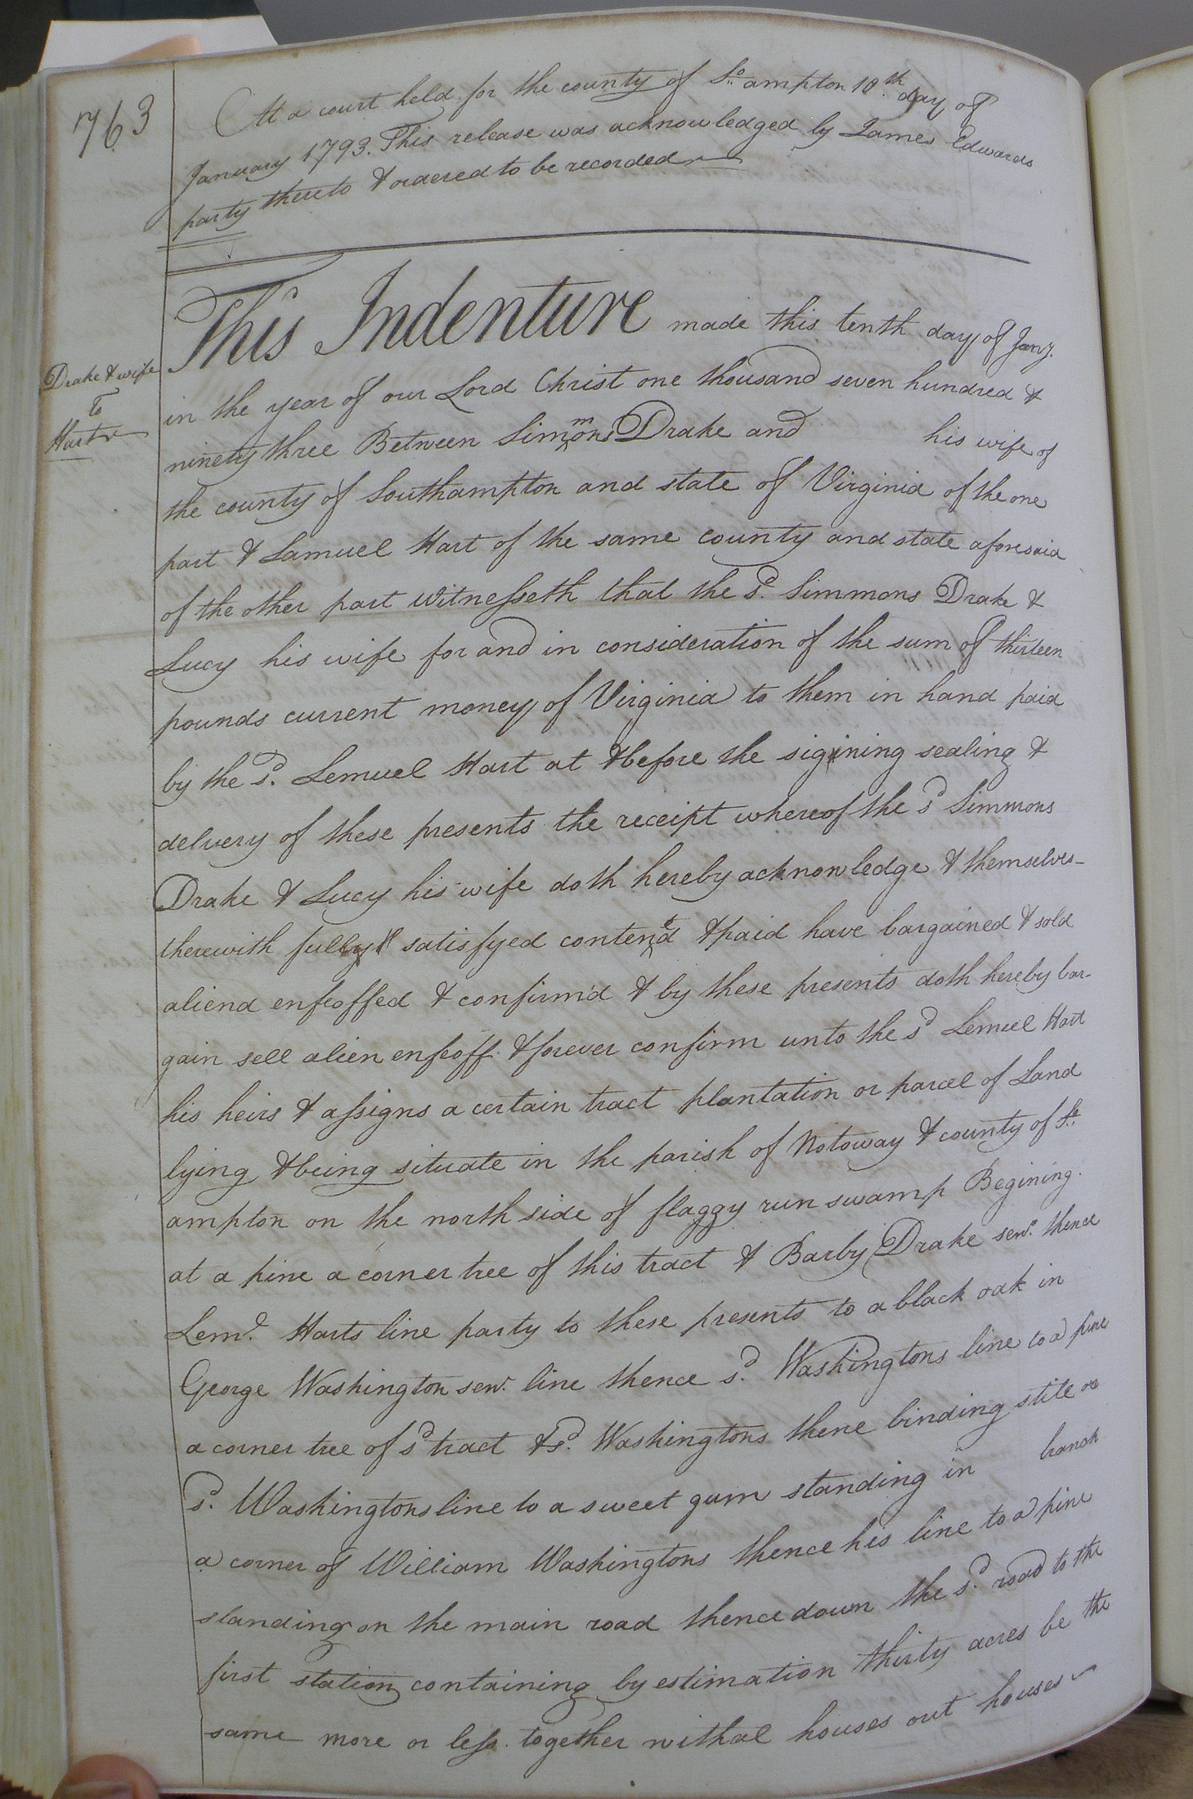 763
At a court held for the county of So. ampton 10th day of
January 1793. This release was acknowledged by James Edwards
party thereto & ordered to be recorded
Drake & wife
To
Hart
This Indenture made this tenth day of Jany.
in the year of our Lord Christ one thousand seven hundred &
ninety three Between Simmons Drake and his wife of
the county of Southampton and state of Virginia of the one
part & Lamuel Hart of the same county and state aforesaid
of the other part Witnesseth that the sd. Simmons Drake &
Lucy his wife for and in consideration of the sum of thirteen
pounds current money of Virginia to them in hand paid
by the sd. Lemuel Hart at & before the signing sealing &
delvery of these presents the receipt whereof the sd Simmons
Drake & Lucy his wife doth hereby acknowledge & themselves
therewith fully satisfyed contented & paid have bargained & sold
aliend enfeoffed & confirmd & by these presents doth hereby bar-
gain sell alien enfeoff & forever confirm unto the sd Lemuel Hart
his heirs & assigns a certain tract plantation or parcel of Land
lying & being situate in the parish of Notoway & county of So.
ampton on the north side of flaggy run swamp Begining
at a pine a corner tree of this tract & Barby Drake senr. thence
Leml. Harts line party to these presents to a black oak in
George Washington senr. line thence sd. Washingtons line to a pine
a corner tree of sd tract & sd. Washingtons thene binding stile on
sd. Washingtons line to a sweet gum standing in branch
a corner of William Washingtons thence his line to a pine
standing on the main road thence down the sd. road to the
first station containing by estimation thirty acres be the
same more or less together withal houses out houses